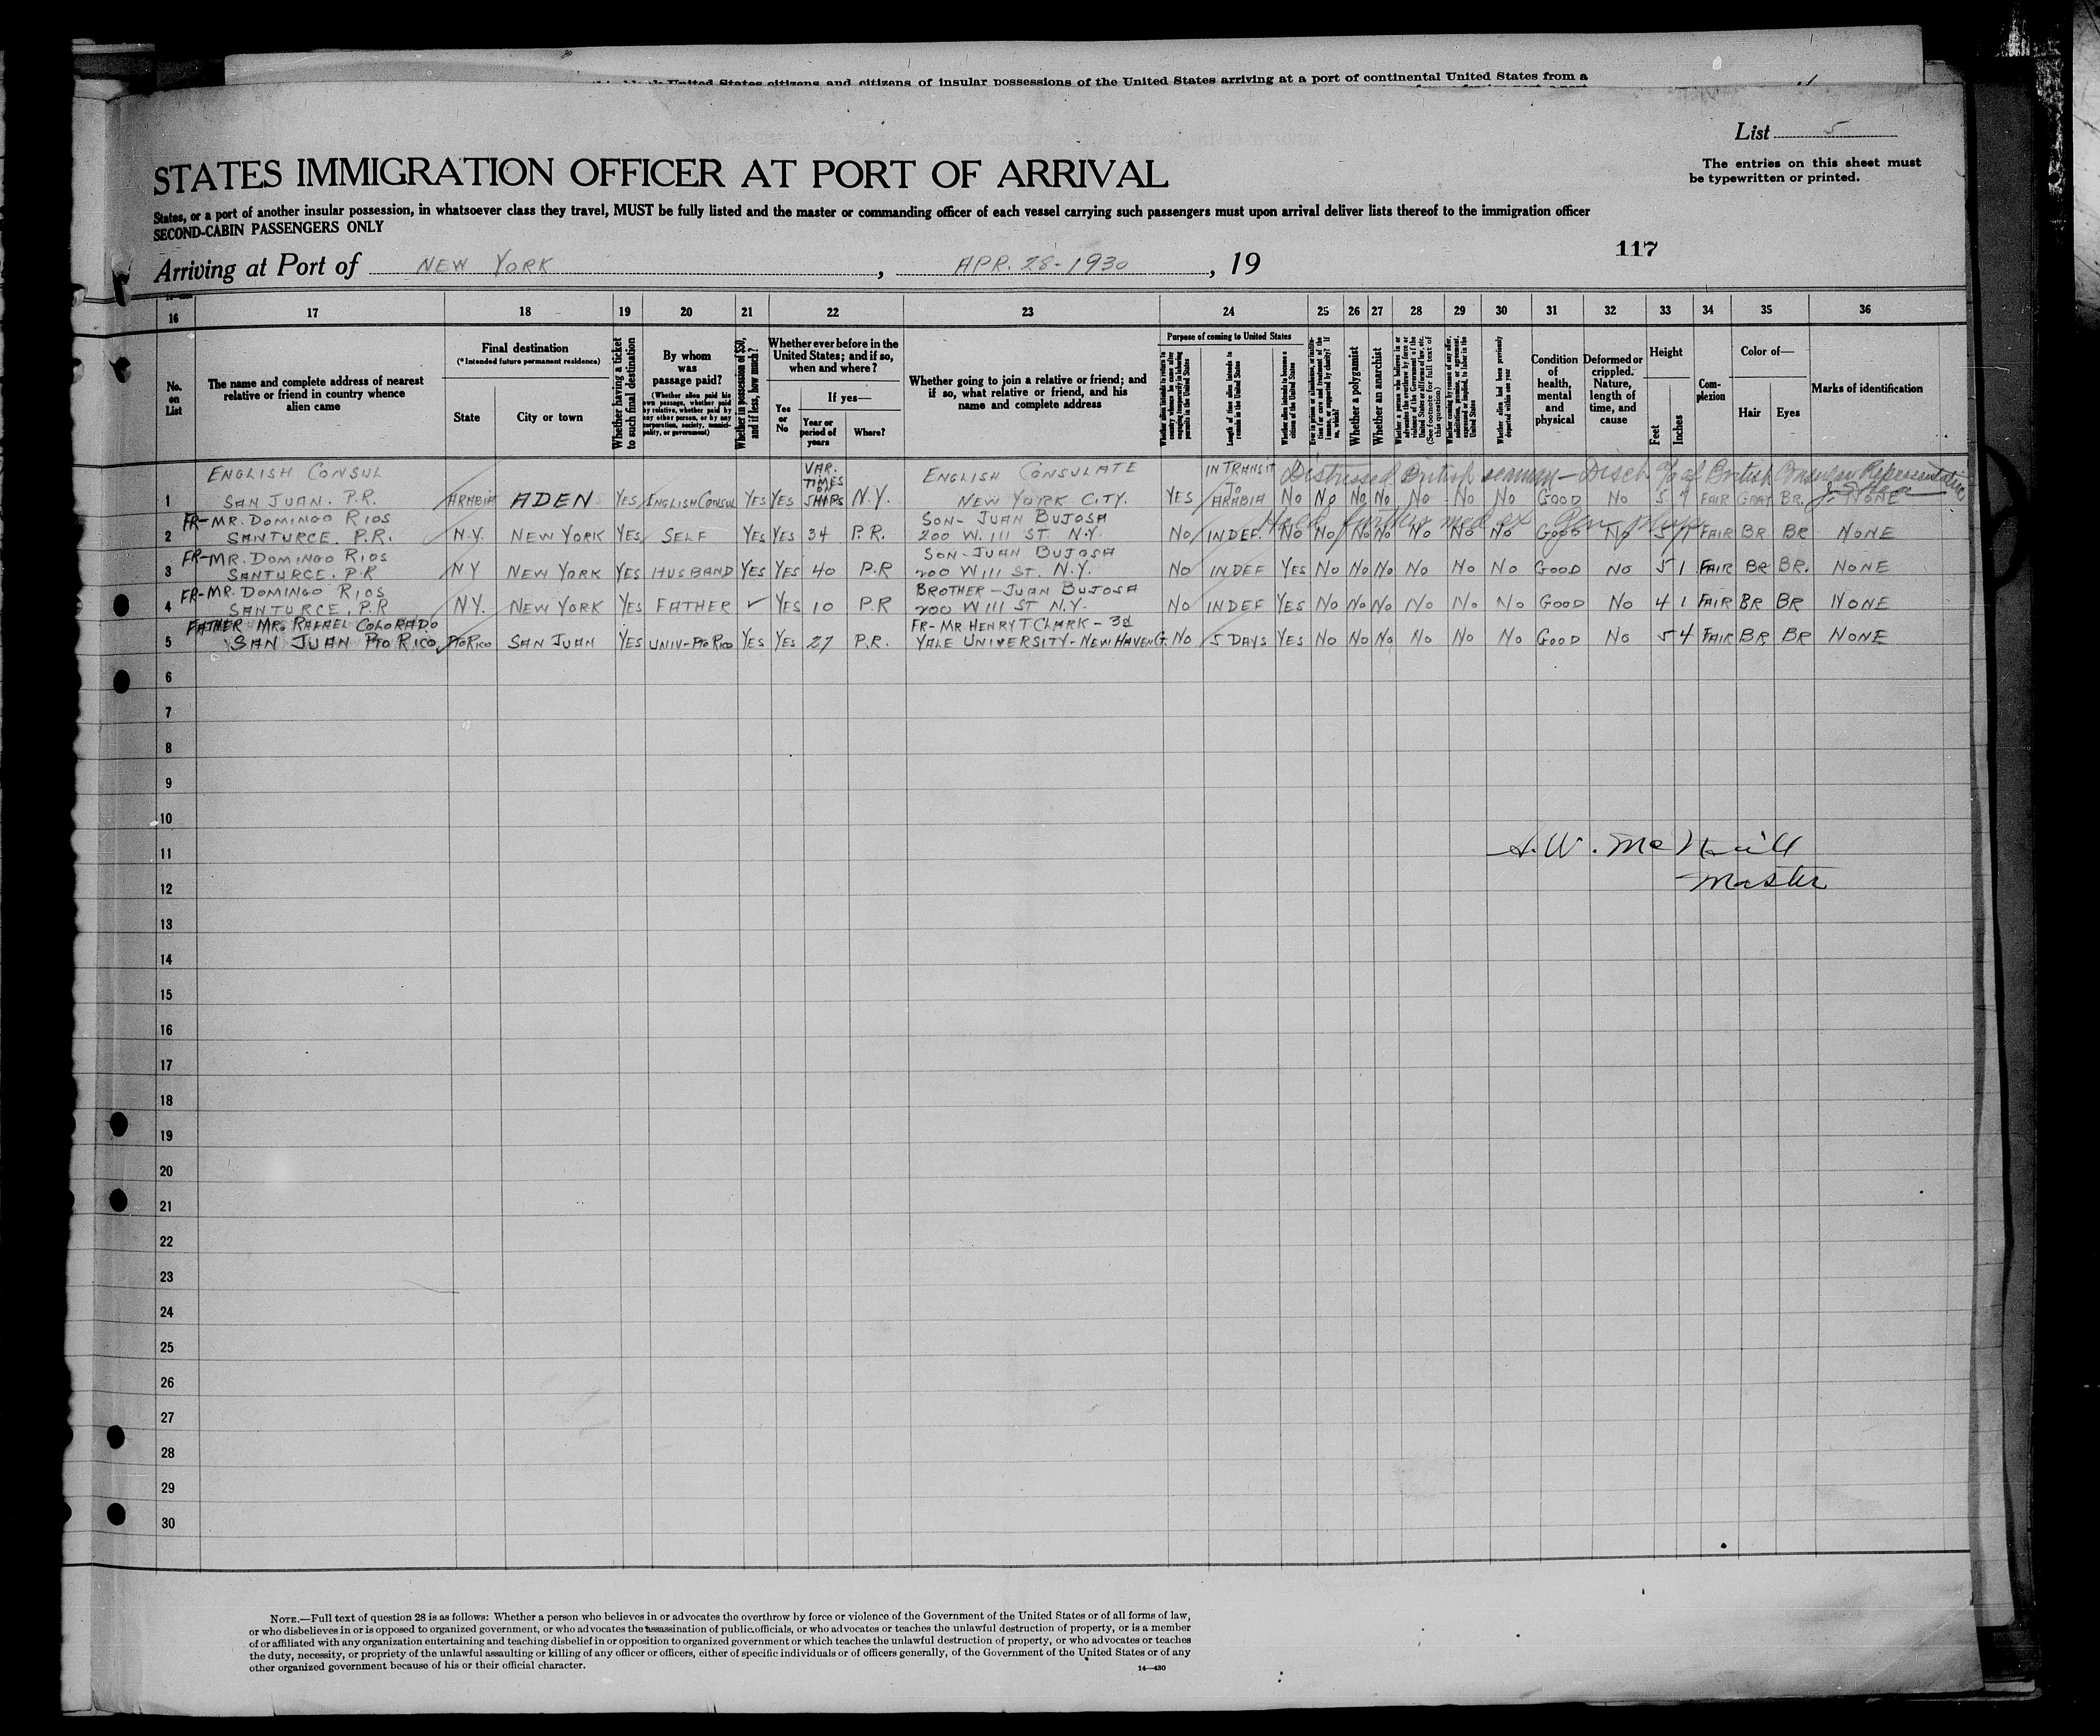 United States citizens and citizens of insular possessions of the United States arriving at a port of continental United States from a
List 5
The entries on this sheet must
be typewritten or printed.
STATES IMMIGRATION OFFICER AT PORT OF ARRIVAL
States, or a port of another insular possession, in whatsoever class they travel, MUST be fully listed and the master or commanding officer of each vessel carrying such passengers must upon arrival deliver lists thereof to the immigration officer
SECOND-CABIN PASSENGERS ONLY
117
Arriving at Port of NEW YORK, APR. 28-1930, 19
16 17 18 19 20 21 22 23 24 25 26 27 28 29 30 31 32 33 34 35 36
No. on List
The name and complete address of nearest relative or friend in country whence alien came
Final destination
(*Intended future permanent residence)
State
City or town
Whether having a ticket to such final destination
By whom was passage paid?
(Whether alien paid his own passage, whether paid by relative, whether paid by any other person, or by any corporation, society, municipality, or government)
Whether in possession of $50, and if less, how much?
Whether ever before in the United States; and if so, when and where?
Yes or No
If yes—
Year or period of years
Where?
Whether going to join a relative or friend; and if so, what relative or friend, and his name and complete address
Purpose of coming to United States
Length of time alien intends to remain in the United States
Whether alien intends to become a citizen of the United States
Whether a polygamist
Whether an anarchist
Condition of health, mental and physical
Deformed or crippled. Nature, length of time, and cause
Height
Feet
Inches
Complexion
Color of—
Hair
Eyes
Marks of identification
ENGLISH CONSUL VAR. TIMES ENGLISH CONSULATE IN TRANSIT TO Distressed British seaman - Disch % of British Consular Representative
1 SAN JUAN. P.R. ARABIA ADEN YES ENGLISH CONSUL YES YES SHIPS N.Y. NEW YORK CITY. YES ARABIA NO NO NO NO NO NO NO GOOD NO 5 7 FAIR GRAY BR. NONE
FR-MR. DOMINGO RIOS SON- JUAN BUJOSA Hold further med ex
2 SANTURCE. P.R. N.Y. NEW YORK YES SELF YES YES 34 P.R. 200 W. 111 ST. N.Y. NO INDEF. NO NO NO NO NO NO NO GOOD NO 5 1 FAIR BR BR NONE
FR-MR. DOMINGO RIOS SON-JUAN BUJOSA
3 SANTURCE. P.R N Y NEW YORK YES HUSBAND YES YES 40 P.R 200 W 111 ST. N.Y. NO INDEF YES NO NO NO NO NO NO GOOD NO 5 1 FAIR BR BR. NONE
FR-MR. DOMINGO RIOS BROTHER-JUAN BUJOSA
4 SANTURCE. P.R N.Y. NEW YORK YES FATHER ✓ YES 10 P.R 200 W 111 ST N.Y. NO INDEF YES NO NO NO NO NO NO GOOD NO 4 1 FAIR BR BR NONE
FATHER MR. RAFAEL COLORADO FR-MR HENRY T CLARK-3d
5 SAN JUAN PTO RICO PTO RICO SAN JUAN YES UNIV-PTO RICO YES YES 27 P.R. YALE UNIVERSITY-NEW HAVEN NO 5 DAYS YES NO NO NO NO NO NO GOOD NO 5 4 FAIR BR BR NONE
6
7
8
9
10
11
A.W. McNeill
12
Master
13
14
15
16
17
18
19
20
21
22
23
24
25
26
27
28
29
30
NOTE.—Full text of question 28 is as follows: Whether a person who believes in or advocates the overthrow by force or violence of the Government of the United States or of all forms of law,
or who disbelieves in or is opposed to organized government, or who advocates the assassination of public officials, or who advocates or teaches the unlawful destruction of property, or is a member
of or affiliated with any organization entertaining and teaching disbelief in or opposition to organized government or which teaches the unlawful destruction of property, or who advocates or teaches
the duty, necessity, or propriety of the unlawful assaulting or killing of any officer or officers, either of specific individuals or of officers generally, of the Government of the United States or of any
other organized government because of his or their official character.
14—430